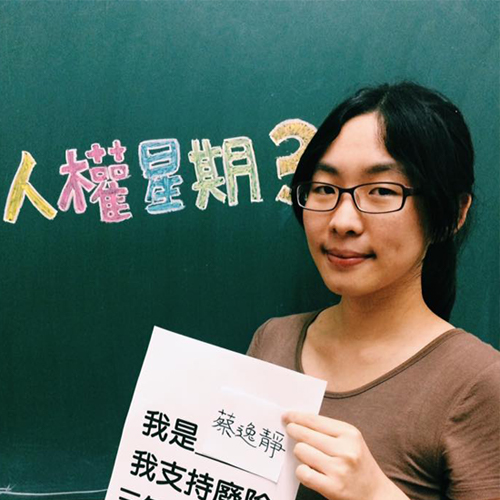 人權星期3
我是蔡逸靜
我支持廢除